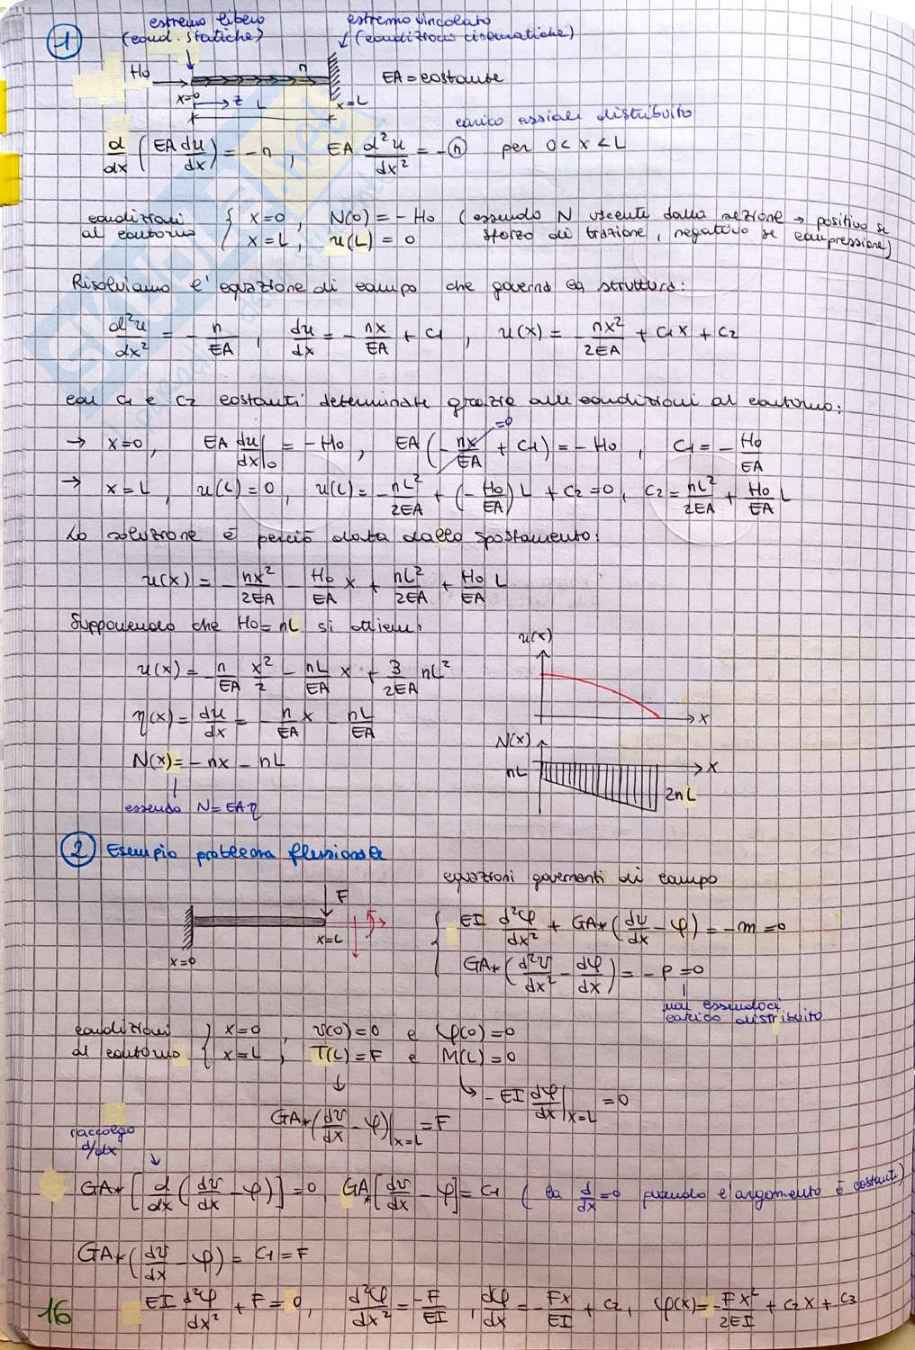 1
estremo libero
(cond. statiche)
estremo vincolato
(condizioni cinematiche)
H₀
n
EA = costante
x=0
z
L
x=L
carico assiale distribuito
d/dx (EA du/dx) = -n , EA d²u/dx² = -n per 0 < x < L
condizioni al contorno { x=0 , N(0) = -H₀ (essendo N uscente dalla sezione → positivo se
x=L , u(L) = 0 sforzo di trazione, negativo se compressione)
Risolviamo l'equazione di campo che governa la struttura:
d²u/dx² = -n/EA , du/dx = -nx/EA + C1 , u(x) = -nx²/2EA + C1x + C2
con C1 e C2 costanti determinate grazie alle condizioni al contorno:
→ x=0, EA du/dx|₀ = -H₀ , EA (-nx/EA + C1) = -H₀ , C1 = -H₀/EA
=0
→ x=L , u(L)=0 , u(L) = -nL²/2EA + (-H₀/EA)L + C2=0 , C2 = nL²/2EA + H₀/EA L
La soluzione è perciò data dallo spostamento:
u(x) = -nx²/2EA - H₀/EA x + nL²/2EA + H₀/EA L
Supponendo che H₀=nL si ottiene:
u(x) = -n/EA x²/2 - nL/EA x + 3/2EA nL²
η(x) = du/dx = -n/EA x - nL/EA
N(x) = -nx - nL
essendo N = EAη
u(x)
x
N(x)
x
nL
2nL
2 Esempio problema flessionale
F
x=0
x=L
equazioni governanti di campo
{ EI d²φ/dx² + GA* (dv/dx - φ) = -m = 0
GA* (d²v/dx² - dφ/dx) = -p = 0
non essendoci
carico distribuito
condizioni al contorno { x=0 , v(0)=0 e φ(0)=0
x=L , T(L)=F e M(L)=0
GA* (dv/dx - φ)|x=L = F
-EI dφ/dx|x=L = 0
raccolgo
d/dx
GA* [d/dx (dv/dx - φ)] = 0 GA* [dv/dx - φ] = C1 (la d/dx =0 quando l'argomento è costante)
GA* (dv/dx - φ) = C1 = F
EI d²φ/dx² + F = 0, d²φ/dx² = -F/EI , dφ/dx = -Fx/EI + C2 , φ(x) = -Fx²/2EI + C2x + C3
16